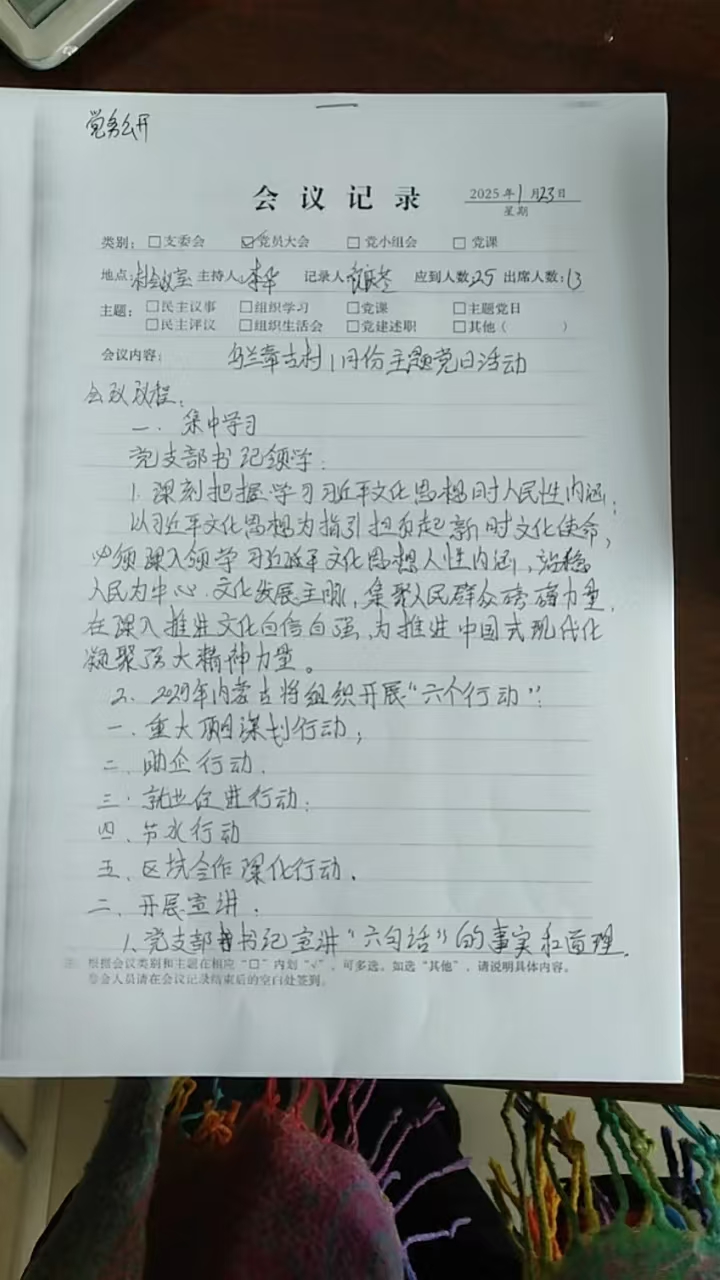 党务公开
会议记录
2025年1月23日
星期
类别: □支委会 ☑党员大会 □党小组会 □党课
地点:村会议室 主持人:李华 记录人 应到人数:25 出席人数:13
主题: □民主议事 □组织学习 □党课 □主题党日
□民主评议 □组织生活会 □党建述职 □其他( )
会议内容: 乌兰章古村1月份主题党日活动
会议议程:
一、集中学习
党支部书记领学:
1. 深刻把握学习习近平文化思想时人民性内涵;
以习近平文化思想为指引担负起新时文化使命,
必须深入领学习近平文化思想人性内涵,
人民为中心.文化发展主脉,集聚人民群众磅礴力量,
在深入推进文化自信自强,为推进中国式现代化
凝聚强大精神力量。
2、2025年内蒙古将组织开展“六个行动”:
一.重大项目谋划行动;
二、助企行动.
三.就业促进行动:
四、节水行动
五、区域合作深化行动.
二、开展宣讲:
1.党支部书记宣讲“六句话”的事实和道理.
注 根据会议类别和主题在相应“□”内划“√”,可多选。如选“其他”,请说明具体内容。
参会人员请在会议记录结束后的空白处签到。